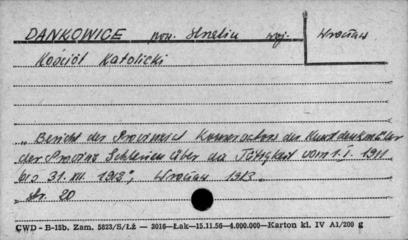 DANKOWICE pow. Strzelin woj. Wrocław
Kościół Katolicki
„Bericht des Provinzial Konservators der Kunstdenkmäler
der Provinz Schlesien über die Tätigkeit vom 1.I. 1911
bis 31. XII. 1913", Wrocław 1913.
str. 20
CWD - B-15b. Zam. 5823/S/Łż — 3016—Łak—15.11.56—4.000.000—Karton kl. IV A1/200 g